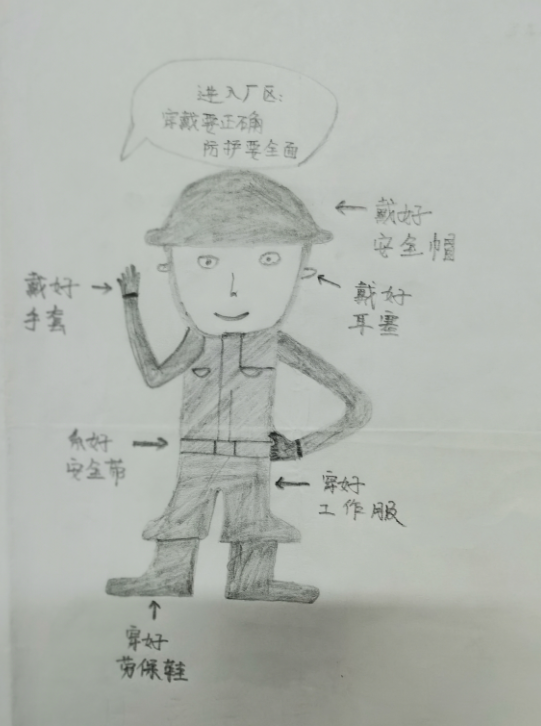 进入厂区:
穿戴要正确
防护要全面
戴好
安全帽
戴好
手套
戴好
耳塞
系好
安全带
穿好
工作服
穿好
劳保鞋